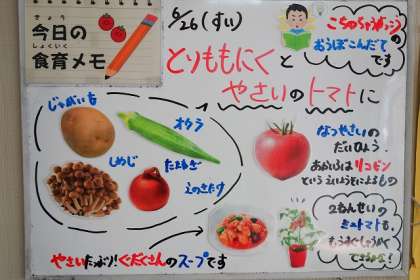 きょう
今日の
しょくいく
食育メモ
6/26(すい)
おうぼこんだて
です
とりももにくと
やさいのトマトに
じゃがいも
オクラ
しめじ
たまねぎ
えのきたけ
なつやさいの
だいひょう。
あかいろはリコピン
というえいようによるもの
2ねんせいの
ミニトマトも、
もうすぐしゅうかく
できるかな!
やさいたっぷり!ぐだくさんのスープです